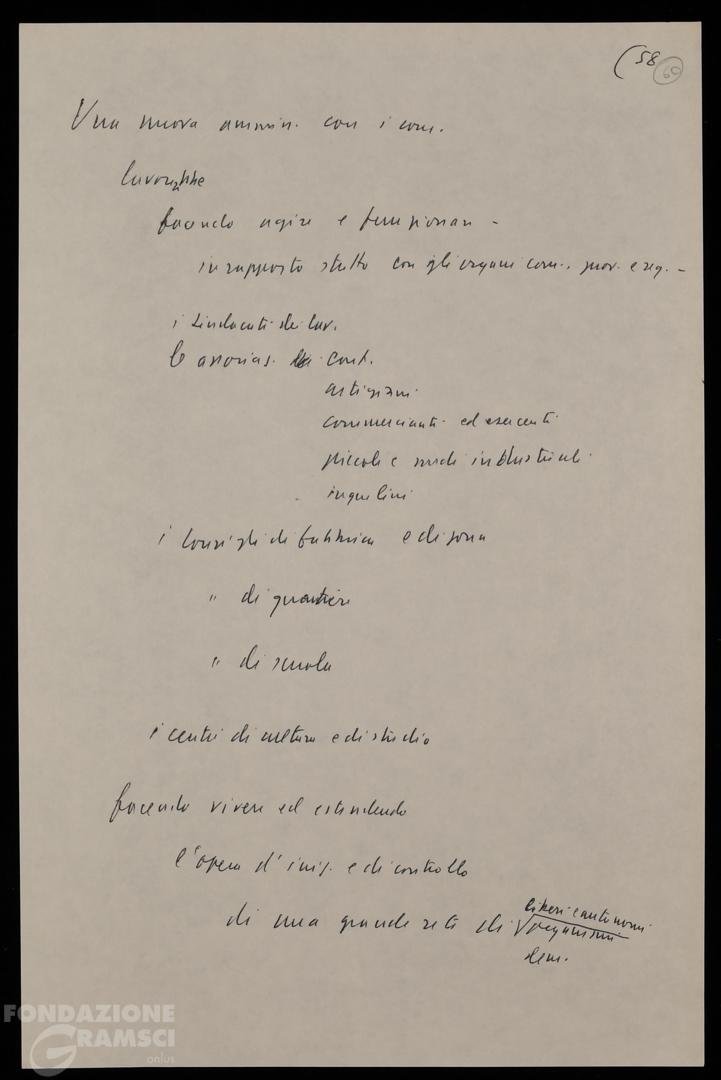 (58
60
Una nuova ammin. con i com.
lavorerebbe
facendo agire e funzionare -
in rapporto stretto con gli organi com., prov. e reg. -
i sindacati dei lav.
le associaz. dei cont.
artigiani
commercianti ed esercenti
piccoli e medi industriali
inquilini
i consigli di fabbrica e di zona
" di quartiere
" di scuola
i centri di cultura e di studio
facendo vivere ed estendendo
l'opera d'iniz. e di controllo
liberi e autonomi
di una grande rete di organismi
dem.
FONDAZIONE
GRAMSCI
onlus